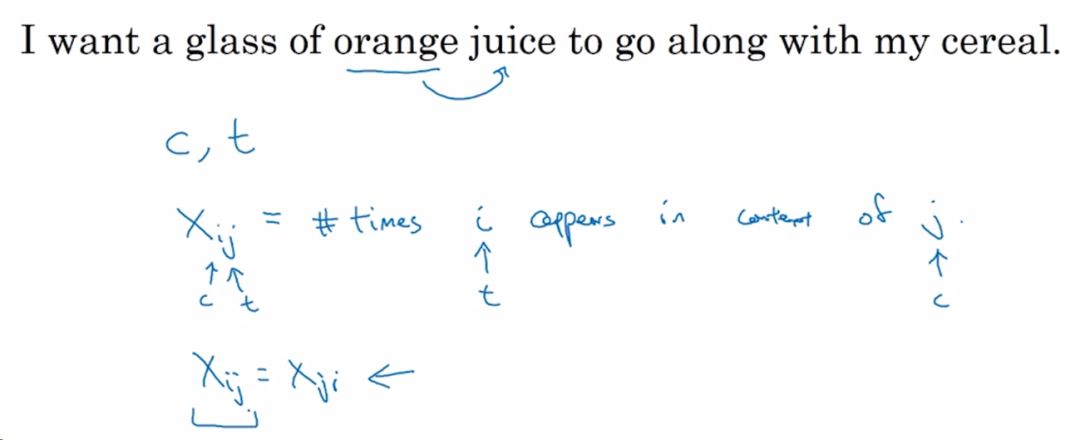 I want a glass of orange juice to go along with my cereal.
c, t
Xij = # times i appears in context of j.
↑ ↑ ↑ ↑
c t t c
Xij = Xji ←